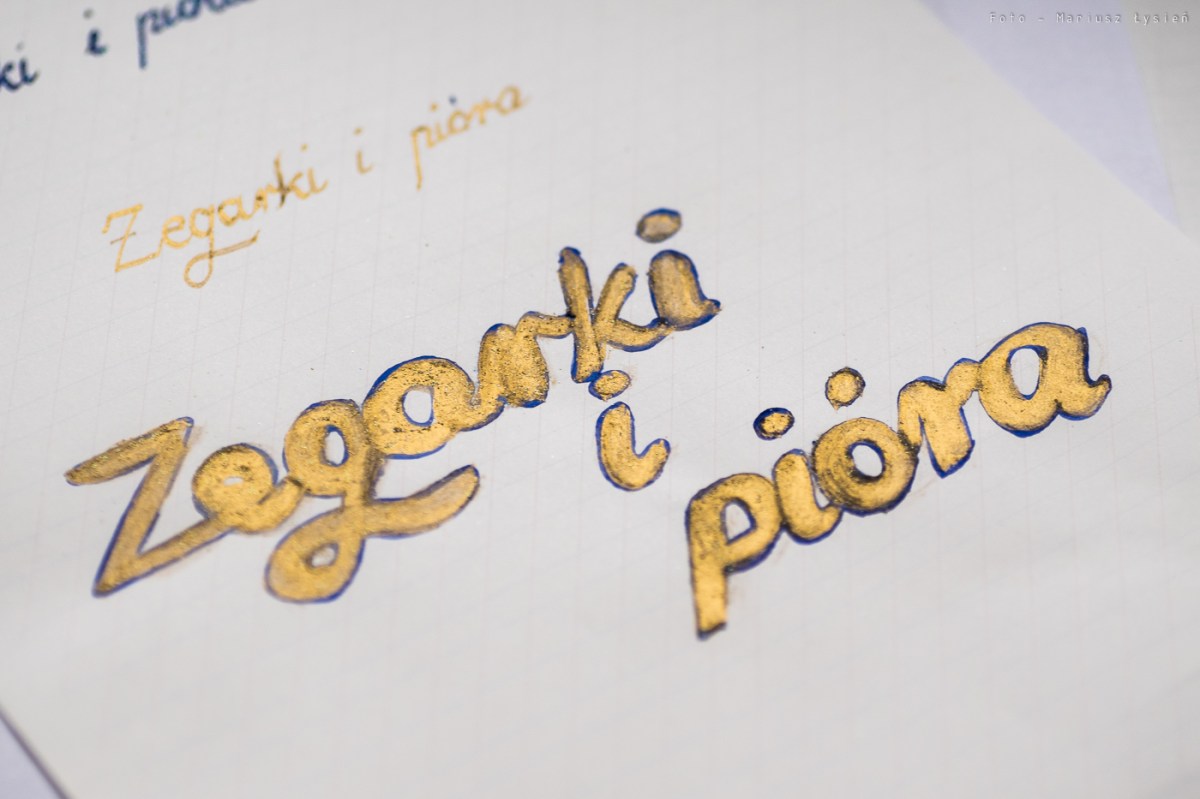 Foto - Mariusz Łysień
ki i pióra
Zegarki i pióra
Zegarki
i
pióra